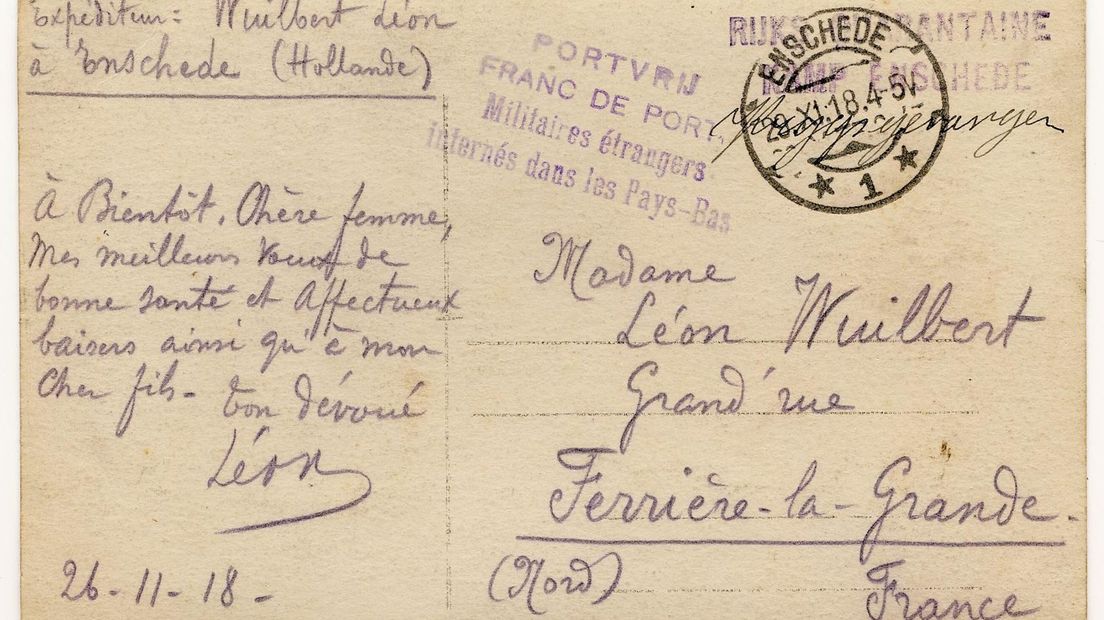 Expéditeur: Wuilbert Léon
à Enschede (Hollande)
PORTVRIJ
FRANC DE PORT.
Militaires étrangers
internés dans les Pays-Bas
RIJKS RANTAINE
KAMP ENSCHEDE
ENSCHEDE
28.XI.18.4-5V
* 1 *
À Bientôt. Chère femme,
Mes meilleurs vœux de
bonne santé et affectueux
baisers ainsi qu'à mon
Cher fils- ton dévoué
Léon
26-11-18-
Madame
Léon Wuilbert
Grand'rue
Ferrière-la-Grande.
(Nord) France